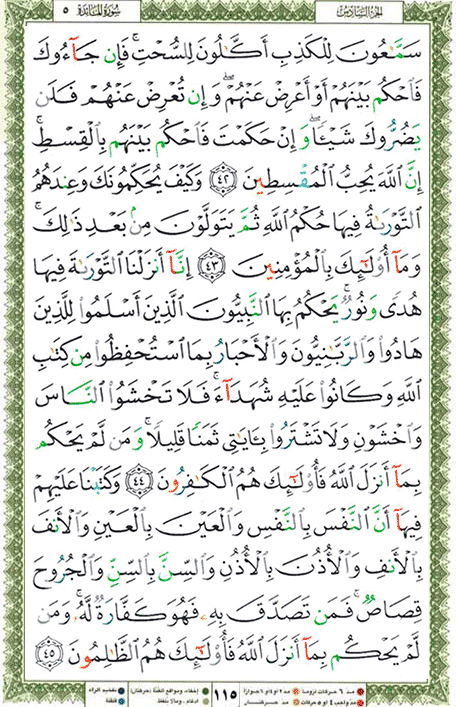 الجزء السادس سورة المائدة ٥
سَمَّٰعُونَ لِلْكَذِبِ أَكَّٰلُونَ لِلسُّحْتِ ۚ فَإِن جَآءُوكَ
فَٱحْكُم بَيْنَهُمْ أَوْ أَعْرِضْ عَنْهُمْ ۖ وَإِن تُعْرِضْ عَنْهُمْ فَلَن
يَضُرُّوكَ شَيْـًٔا ۖ وَإِنْ حَكَمْتَ فَٱحْكُم بَيْنَهُم بِٱلْقِسْطِ ۚ
إِنَّ ٱللَّهَ يُحِبُّ ٱلْمُقْسِطِينَ ٤٢ وَكَيْفَ يُحَكِّمُونَكَ وَعِندَهُمُ
ٱلتَّوْرَىٰةُ فِيهَا حُكْمُ ٱللَّهِ ثُمَّ يَتَوَلَّوْنَ مِنۢ بَعْدِ ذَٰلِكَ ۚ
وَمَآ أُو۟لَٰٓئِكَ بِٱلْمُؤْمِنِينَ ٤٣ إِنَّآ أَنزَلْنَا ٱلتَّوْرَىٰةَ فِيهَا
هُدًى وَنُورٌ ۚ يَحْكُمُ بِهَا ٱلنَّبِيُّونَ ٱلَّذِينَ أَسْلَمُوا۟ لِلَّذِينَ
هَادُوا۟ وَٱلرَّبَّٰنِيُّونَ وَٱلْأَحْبَارُ بِمَا ٱسْتُحْفِظُوا۟ مِن كِتَٰبِ
ٱللَّهِ وَكَانُوا۟ عَلَيْهِ شُهَدَآءَ ۚ فَلَا تَخْشَوُا۟ ٱلنَّاسَ
وَٱخْشَوْنِ وَلَا تَشْتَرُوا۟ بِـَٔايَٰتِى ثَمَنًا قَلِيلًا ۚ وَمَن لَّمْ يَحْكُم
بِمَآ أَنزَلَ ٱللَّهُ فَأُو۟لَٰٓئِكَ هُمُ ٱلْكَٰفِرُونَ ٤٤ وَكَتَبْنَا عَلَيْهِمْ
فِيهَآ أَنَّ ٱلنَّفْسَ بِٱلنَّفْسِ وَٱلْعَيْنَ بِٱلْعَيْنِ وَٱلْأَنفَ
بِٱلْأَنفِ وَٱلْأُذُنَ بِٱلْأُذُنِ وَٱلسِّنَّ بِٱلسِّنِّ وَٱلْجُرُوحَ
قِصَاصٌ ۚ فَمَن تَصَدَّقَ بِهِۦ فَهُوَ كَفَّارَةٌ لَّهُۥ ۚ وَمَن
لَّمْ يَحْكُم بِمَآ أَنزَلَ ٱللَّهُ فَأُو۟لَٰٓئِكَ هُمُ ٱلظَّٰلِمُونَ ٤٥
مد ٦ حركات لزوماً مد ٢ أو ٤ أو ٦ جوازاً ١١٥ إخفاء، ومواقع الغنة (حركتان) تفخيم الراء
مد واجب ٤ أو ٥ حركات مد حركتان إدغام، وما لا يلفظ قلقلة